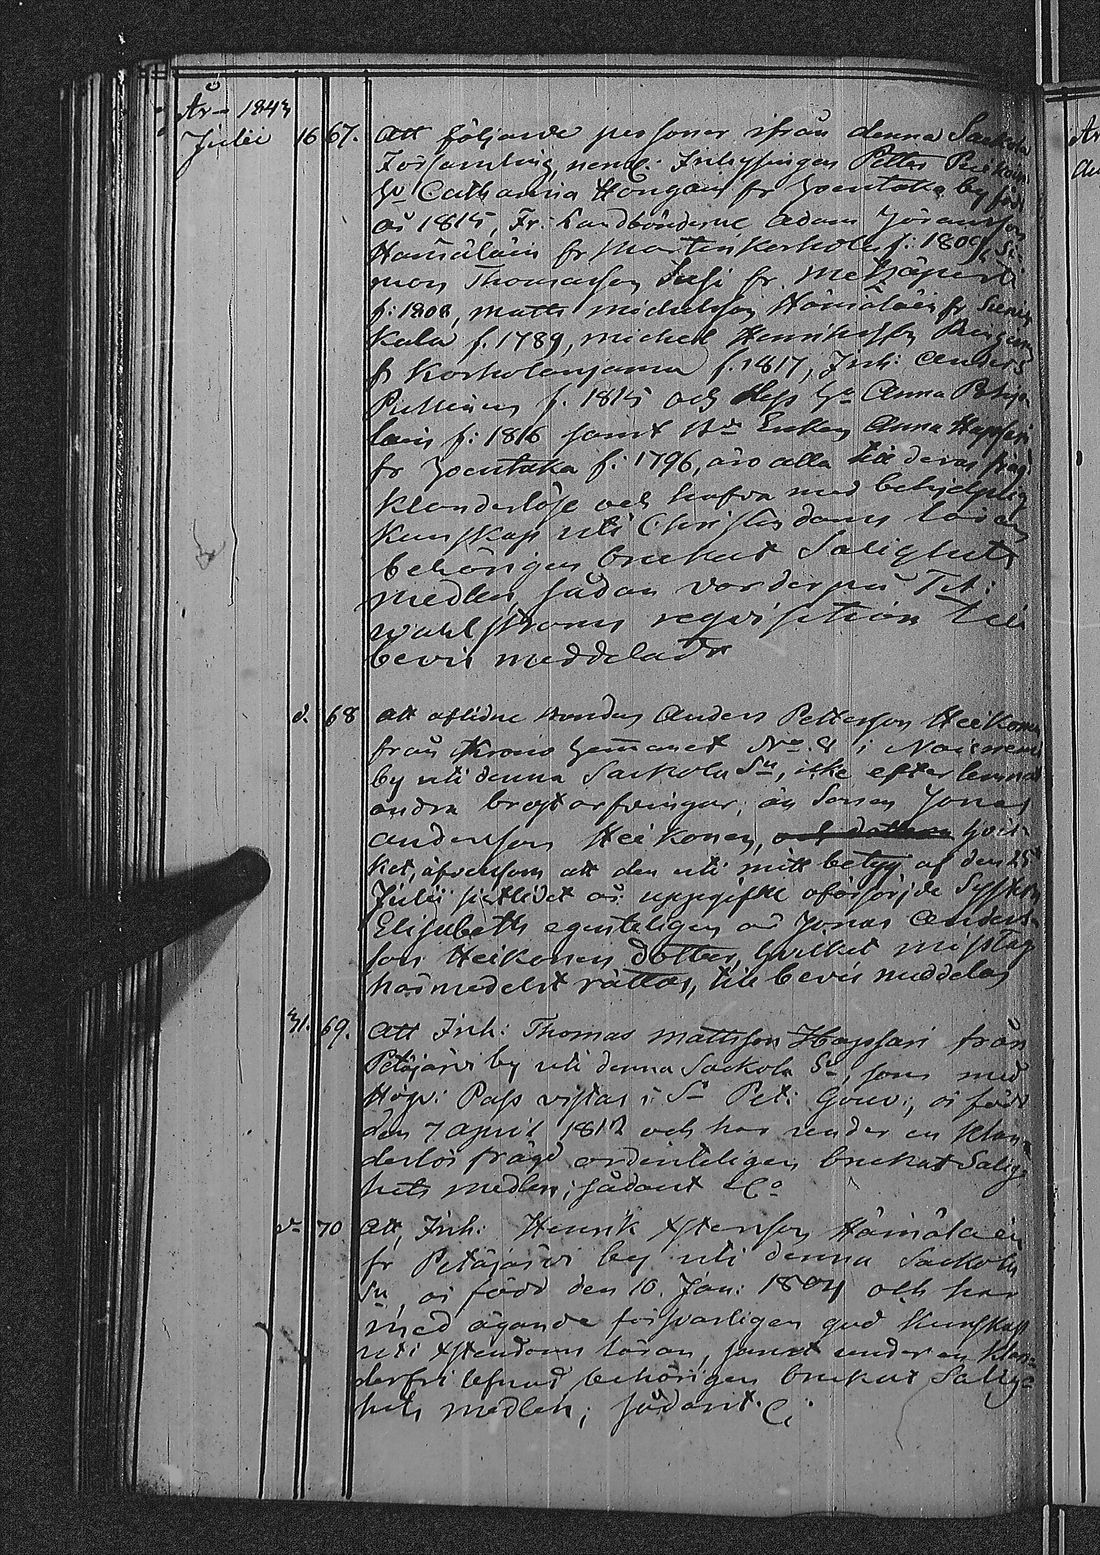 År 1843
Julii 16 67. Att följande personer ifrån denna Sackola
Församling, neml: Inhysingen Petter
H: Catharina Hongain fr Joentaka by född
år 1815, Fr: Landbönderne Adam Jöransson
Hämäläin fr Mortenkorholm f: 1809, Si-
mon Thomasson Susi fr. Metzäpirti
f: 1808, Matts Michelsson Hämäläin fr Suwen
kala f. 1789, Michel Henriksson
fr Korholanjama f. 1817, Inh: Anders
f. 1815 och dess H: Anna
lain f: 1816 samt Enkan Anna Hapsari
fr Joentaka f. 1796, äro alla till deras frägd
klanderlöse och hafva med behjelplig
kunskap uti Christendoms läran
behörigen brukat Salighets
medlen, sådan varder på Tit:
Wahlströms reqvisition till
bevis meddeladt
d. 68 Att aflidne bonden Anders Pettersson Heikonen
från Krono hemmanet No 8 i
by uti denna Sackola Sn, icke efterlemnat
andra bröstarfvingar, än Sonen Jonas
Andersson Heikonen, och dottren hvil-
ket, äfvensom att den uti mitt betyg af den 25
Julii sistlidet år uppgifne oförsörjde Systern
Elisabeth egenteligen är Jonas Anders-
son Heikonens dotter, hvilket misstag
härmedelst rättas, till bevis meddelas
31. 69. Att Inh: Thomas Mattsson Hapsari från
Petäjärvi by uti denna Sackola Sn, som med
Högv: Pass vistas i St Pet: Gouv:, är född
den 7 April 1812 och har under en klan-
derlös frägd ordenteligen brukat Salig-
hets medlen; sådant &Co
d: 70. Att, Inh: Henrik Hämäläin
fr Petäjärvi by uti denna Sackola
Sn, är född den 10. Jan: 1804 och har
med ägande försvarligen god kunskap
uti Xstendoms läran, samt under en klan-
derfri lefnad behörigen brukat Salig-
hets medlen; sådant &:
År
Au